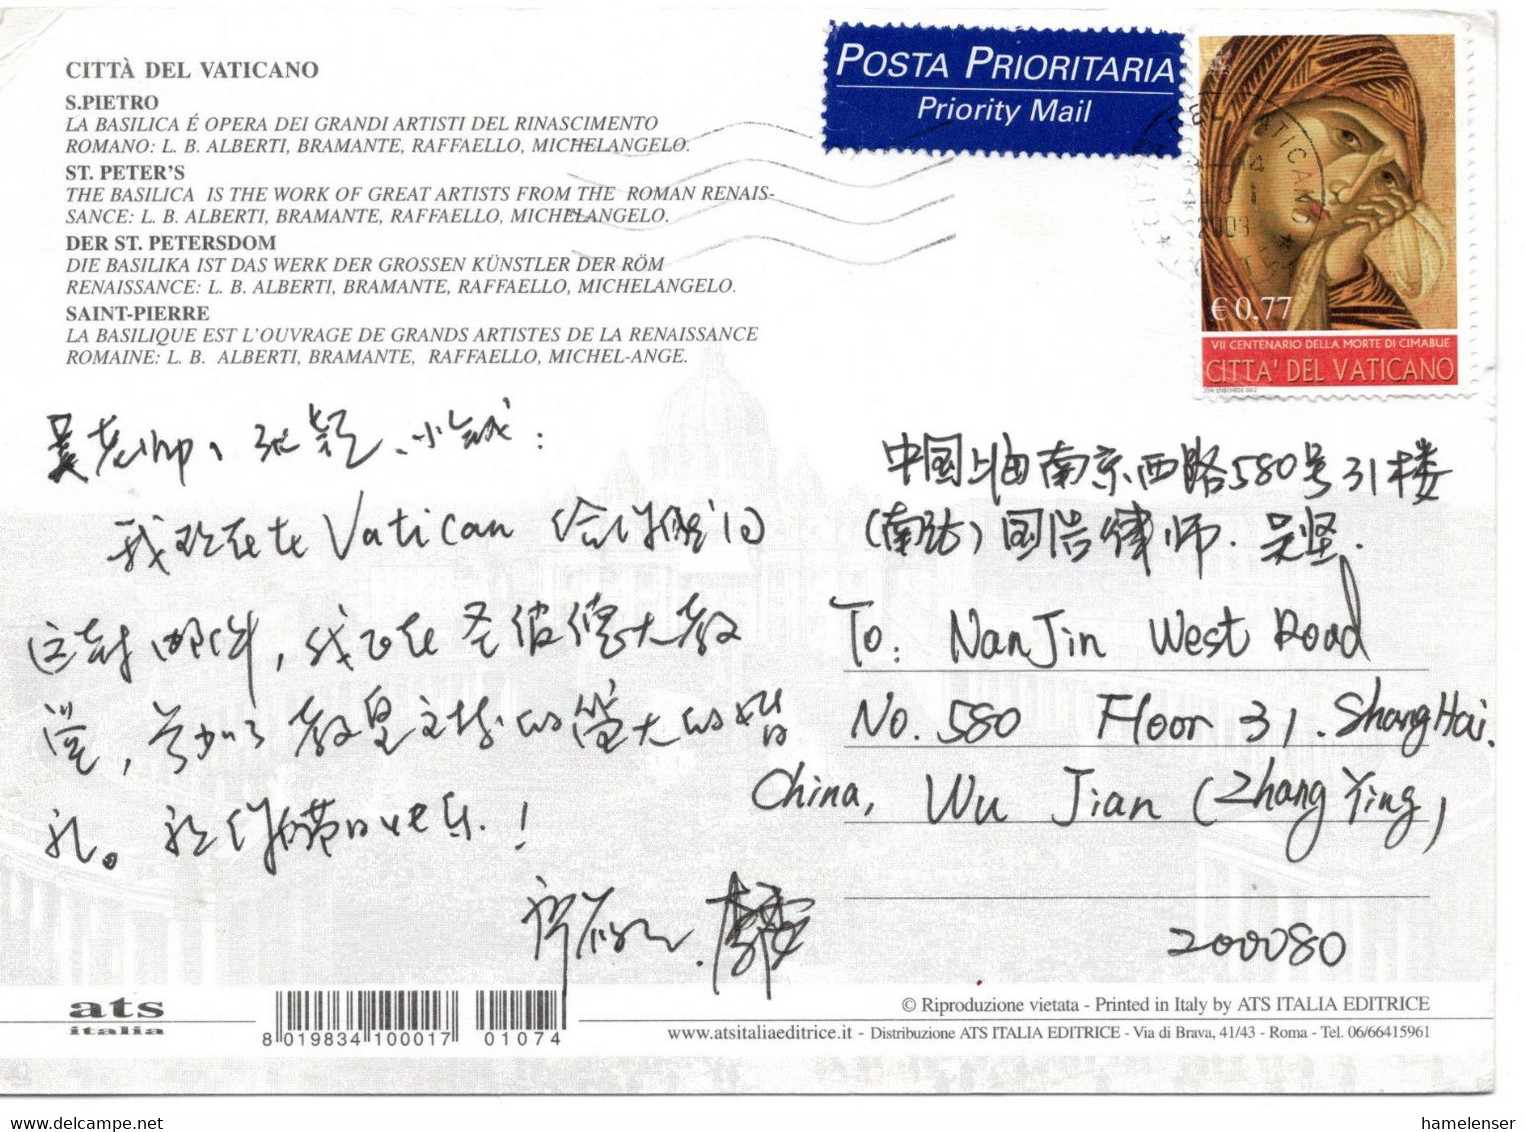 CITTÀ DEL VATICANO
S.PIETRO
LA BASILICA É OPERA DEI GRANDI ARTISTI DEL RINASCIMENTO
ROMANO: L. B. ALBERTI, BRAMANTE, RAFFAELLO, MICHELANGELO.
ST. PETER'S
THE BASILICA IS THE WORK OF GREAT ARTISTS FROM THE ROMAN RENAIS-
SANCE: L. B. ALBERTI, BRAMANTE, RAFFAELLO, MICHELANGELO.
DER ST. PETERSDOM
DIE BASILIKA IST DAS WERK DER GROSSEN KÜNSTLER DER RÖM
RENAISSANCE: L. B. ALBERTI, BRAMANTE, RAFFAELLO, MICHELANGELO.
SAINT-PIERRE
LA BASILIQUE EST L'OUVRAGE DE GRANDS ARTISTES DE LA RENAISSANCE
ROMAINE: L. B. ALBERTI, BRAMANTE, RAFFAELLO, MICHEL-ANGE.
POSTA PRIORITARIA
Priority Mail
€ 0,77
VII CENTENARIO DELLA MORTE DI CIMABUE
CITTA' DEL VATICANO
JOH. ENSCHEDÉ 2002
DEL VATICANO
吴老师、张颖、小诚：
我现在在 Vatican 给你们写
这封邮件，我正在圣彼得大教
堂，参加了教皇主持的盛大的
礼。祝你们节日快乐！
中国上海南京西路580号31楼
(南证) 国浩律师. 吴坚.
To: NanJin West Road
No. 580 Floor 31. ShangHai.
China, Wu Jian (Zhang Ying)
200080
ats
italia
8 019834 100017 01074
© Riproduzione vietata - Printed in Italy by ATS ITALIA EDITRICE
www.atsitaliaeditrice.it - Distribuzione ATS ITALIA EDITRICE - Via di Brava, 41/43 - Roma - Tel. 06/66415961
hamelenser